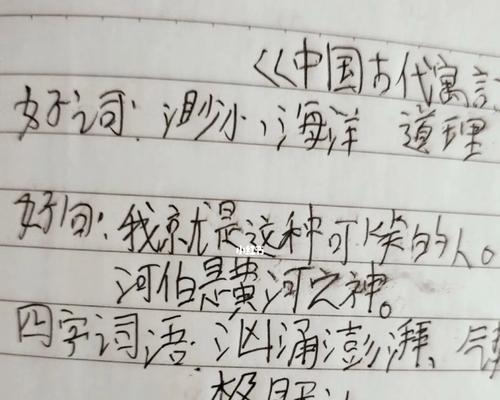 《中国古代寓言
好词:渺小、海洋 道理
好句:我就是这种可笑的人。
小红书
河伯是黄河之神。
四字词语:汹涌澎湃、